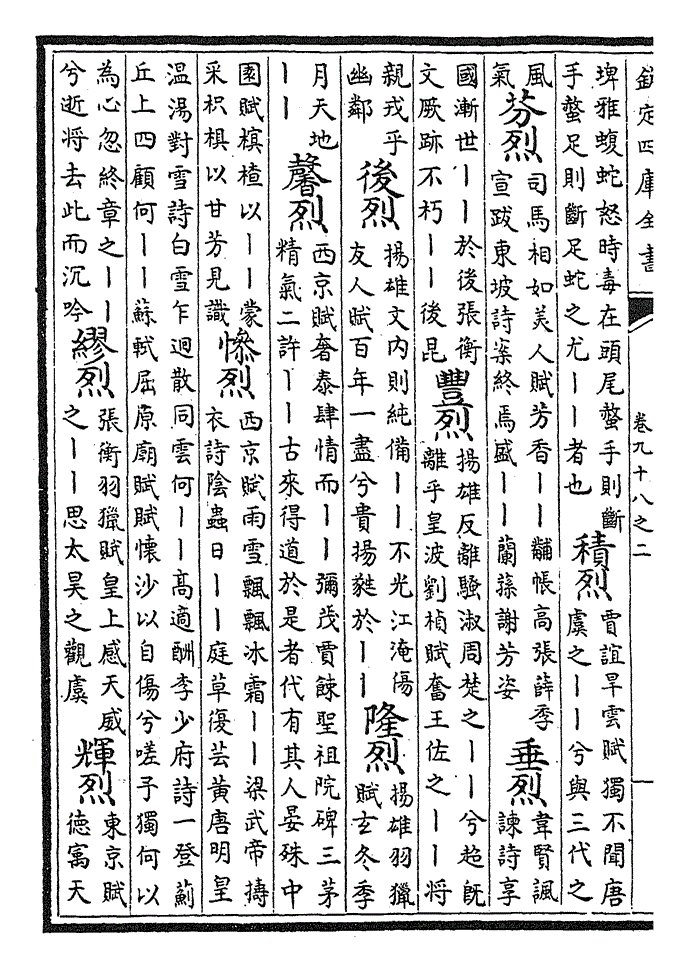 欽定四庫全書
卷九十八之二
埤雅蝮蛇怒時毒在頭尾螫手則斷
手螫足則斷足蛇之尤丨丨者也
積烈
賈誼旱雲賦獨不聞唐
虞之丨丨兮與三代之
風
氣
芬烈
司馬相如美人賦芳香丨丨黼帳高張薛季
宣跋東坡詩案終焉盛丨丨蘭蓀謝芳姿
垂烈
韋賢諷
諫詩享
國漸世丨丨於後張衡
文厥跡不朽丨丨後昆
豐烈
揚雄反離騷淑周楚之丨丨兮超既
離乎皇波劉楨賦奮王佐之丨丨將
親戎乎
幽鄰
後烈
揚雄文内則純備丨丨不光江淹傷
友人賦百年一盡兮貴揚蕤於丨丨
隆烈
揚雄羽獵
賦玄冬季
月天地
丨丨
馨烈
西京賦奢泰肆情而丨丨彌茂賈餗聖祖院碑三茅
精氣二許丨丨古來得道於是者代有其人晏殊中
園賦檳楂以丨丨蒙
采枳椇以甘芳見識
慘烈
西京賦雨雪飄飄冰霜丨丨梁武帝擣
衣詩陰蟲日丨丨庭草復芸黃唐明皇
温湯對雪詩白雪乍迴散同雲何丨丨高適酬李少府詩一登薊
丘上四顧何丨丨蘇軾屈原廟賦賦懷沙以自傷兮嗟子獨何以
為心忽終章之丨丨
兮逝將去此而沉吟
繆烈
張衡羽獵賦皇上感天威
之丨丨思太昊之觀虞
輝烈
東京賦
德寓天